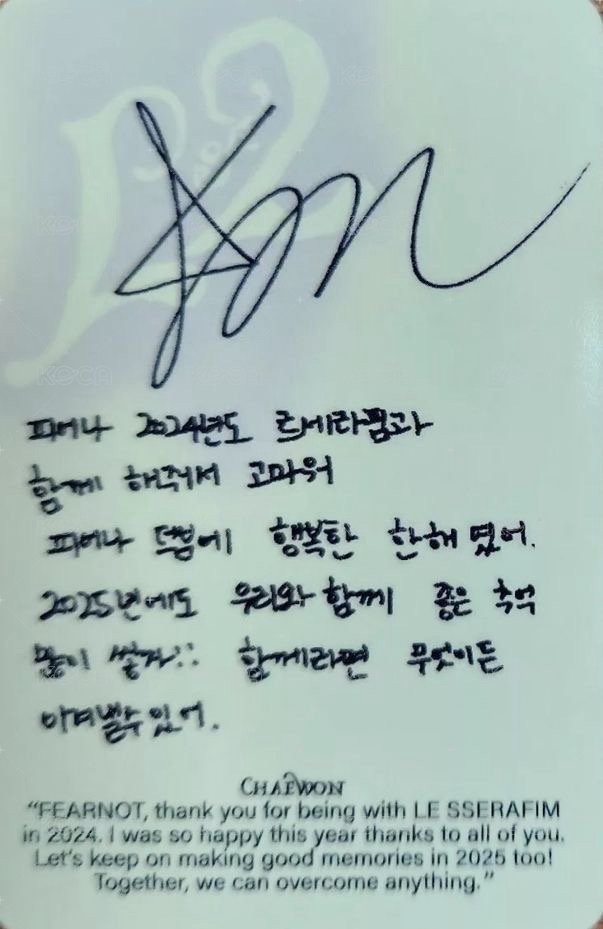 피어나 2024년도 르세라핌과
함께 해줘서 고마워
피어나 덕분에 행복한 한해 였어.
2025년에도 우리와 함께 좋은 추억
많이 쌓자!! 함께라면 무엇이든
이겨낼수 있어.
CHAEWON
"FEARNOT, thank you for being with LE SSERAFIM
in 2024. I was so happy this year thanks to all of you.
Let's keep on making good memories in 2025 too!
Together, we can overcome anything."